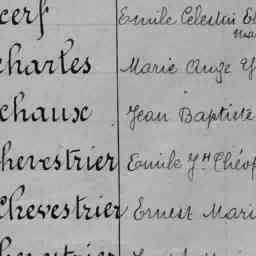 cerf Emile Celestin
charles Marie Ange
chaux Jean Baptiste
chevestrier Emile
Chevestrier Ernest Mari